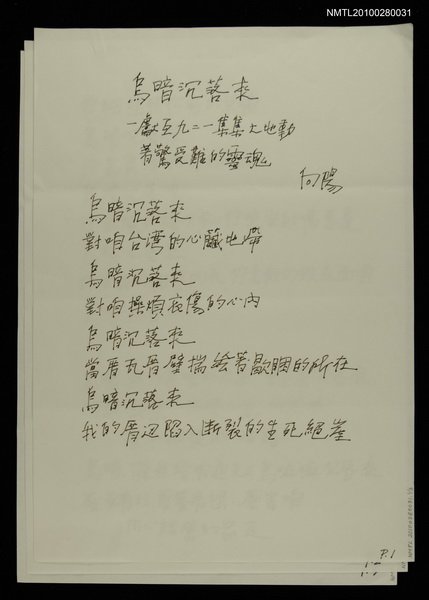 NMTL20100280031
烏暗沉落來
—獻互九二一集集大地動
著驚受難的靈魂
向陽
烏暗沉落來
對咱台灣的心臟地帶
烏暗沉落來
對咱操煩哀傷的心內
烏暗沉落來
當厝瓦厝壁揣無著歇睏的所在
烏暗沉落來
我的厝邊陷入斷裂的生死絕崖
P.1